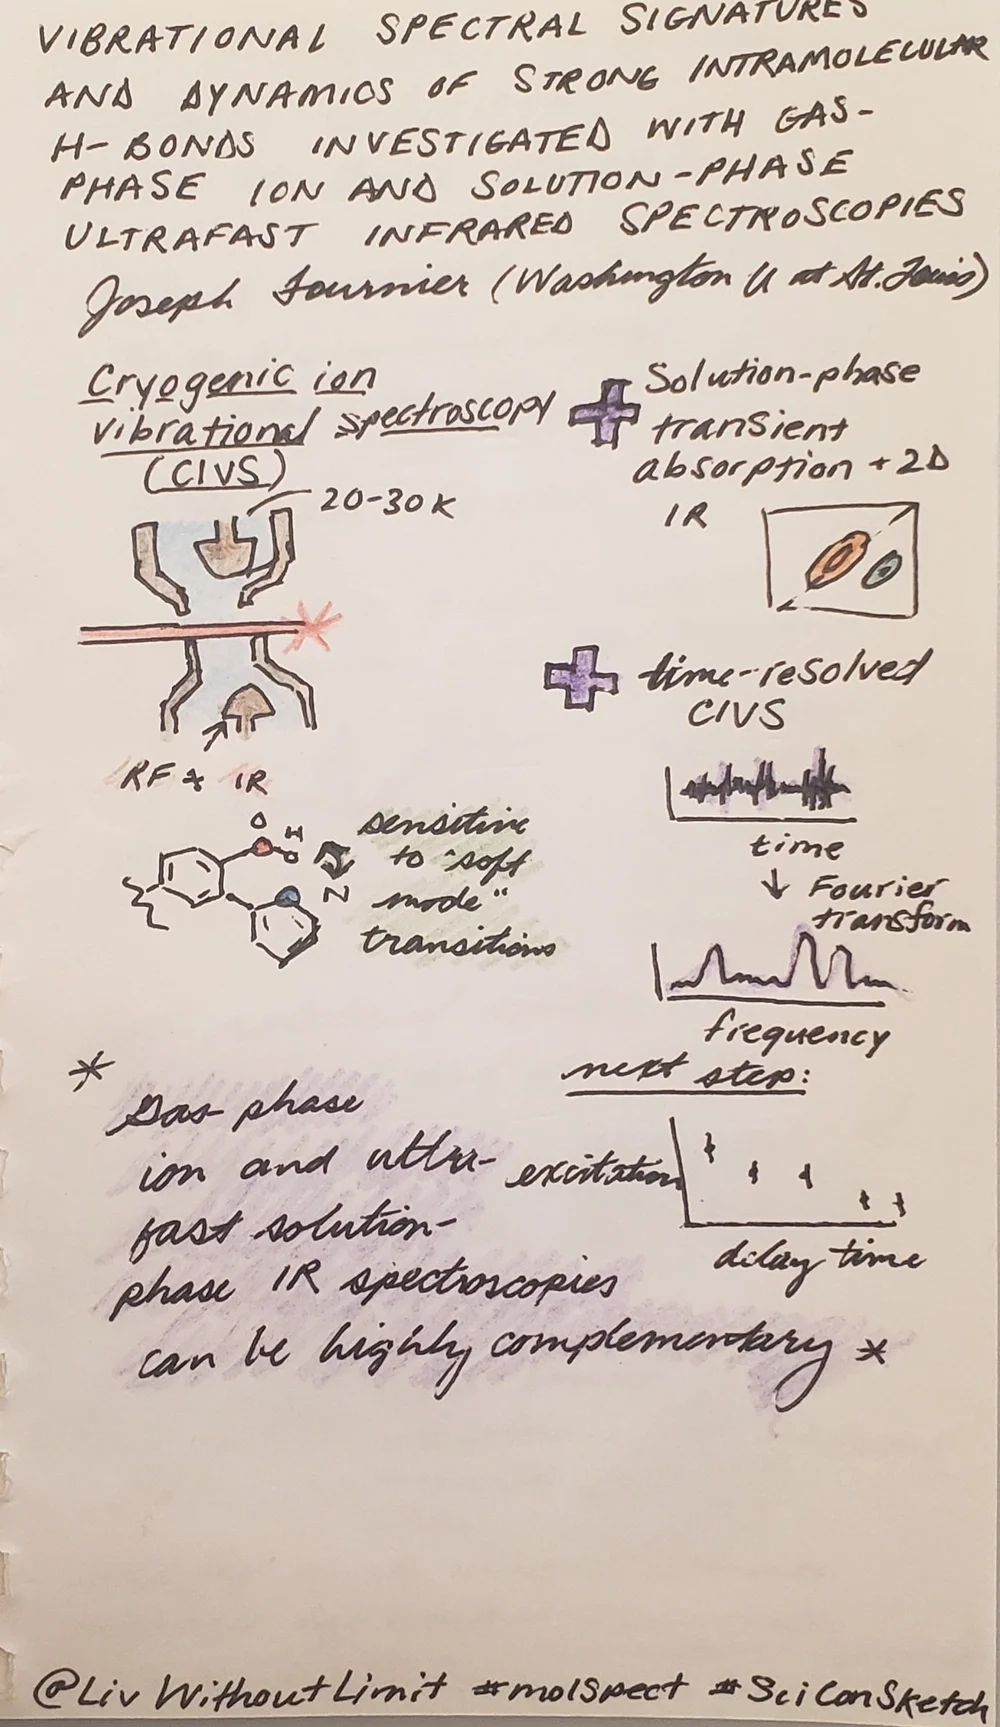 VIBRATIONAL SPECTRAL SIGNATURES
AND DYNAMICS OF STRONG INTRAMOLECULAR
H-BONDS INVESTIGATED WITH GAS-
PHASE ION AND SOLUTION-PHASE
ULTRAFAST INFRARED SPECTROSCOPIES
Joseph Fournier (Washington U at St. Louis)
Cryogenic ion
vibrational spectroscopy
(CIVS)
20-30K
RF + IR
O
H
O
N
sensitive
to "soft
mode"
transitions
Solution-phase
transient
absorption + 2D
IR
time-resolved
CIVS
time
↓ Fourier
transform
frequency
next step:
excitation
delay time
* Gas-phase
ion and ultra-
fast solution-
phase IR spectroscopies
can be highly complementary *
@LivWithoutLimit #molSpect #SciConSketch